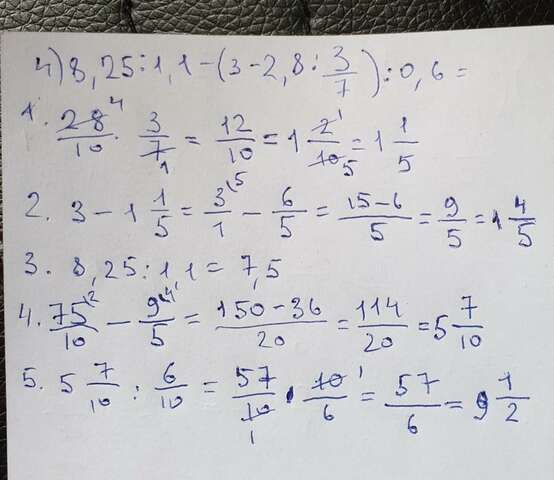 4) 8,25 : 1,1 - (3 - 2,8 : 3/7) : 0,6 =
1. 28⁴/10 · 3/7₁ = 12/10 = 1 2¹/10₅ = 1 1/5
2. 3 - 1 1/5 = 3⁽⁵/1 - 6/5 = 15-6/5 = 9/5 = 1 4/5
3. 8,25 : 1,1 = 7,5
4. 75⁽²/10 - 9⁽⁴/5 = 150-36/20 = 114/20 = 5 7/10
5. 5 7/10 : 6/10 = 57/10₁ · 10¹/6 = 57/6 = 9 1/2